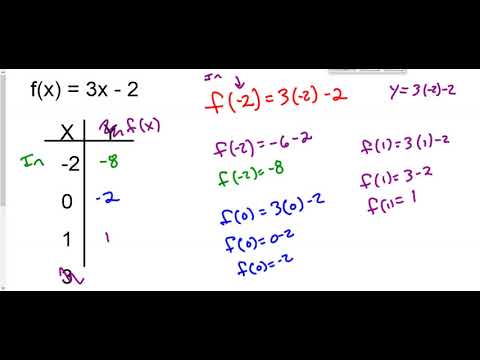 f(x) = 3x - 2
X f(x)
In -2 -8
0 -2
1 1
3
In
f(-2) = 3(-2) - 2
f(-2) = -6 - 2
f(-2) = -8
f(0) = 3(0) - 2
f(0) = 0 - 2
f(0) = -2
y = 3(-2) - 2
f(1) = 3(1) - 2
f(1) = 3 - 2
f(1) = 1